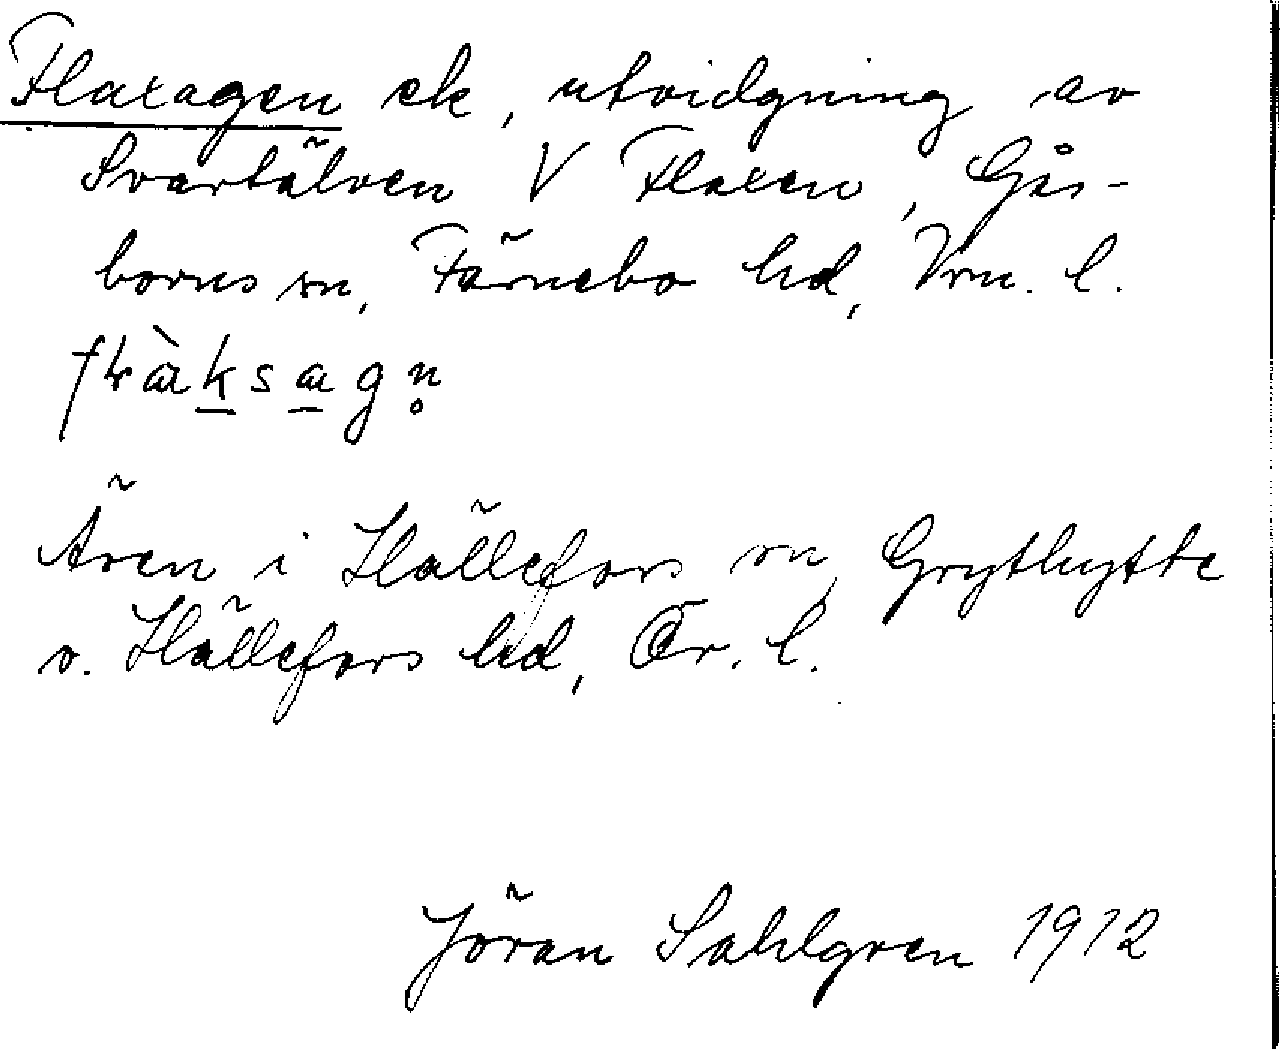 Flaxagen ek, utvidgning av
Svartälven V Flaxen, Gås-
borns sn, Färnebo hd, Vrm. l.
fɫàksagn̥
Även i Hällefors sn, Grythytte
o. Hällefors hd, Ör. l.
Jöran Sahlgren 1912